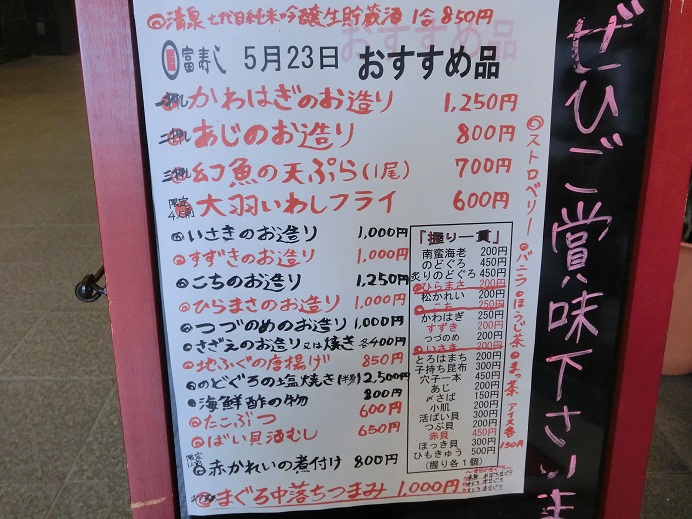 清泉 七代目純米吟醸生貯蔵酒 1合 850円
富寿し 5月23日 おすすめ品
かわはぎのお造り 1,250円
あじのお造り 800円
幻魚の天ぷら(1尾) 700円
限定4人前 大羽いわしフライ 600円
いさきのお造り 1,000円
すずきのお造り 1,000円
こちのお造り 1,250円
ひらまさのお造り 1,000円
つづのめのお造り 1,000円
さざえのお造り又は焼き 各400円
地ふぐの唐揚げ 850円
のどぐろの塩焼き(半身) 2,500円
海鮮酢の物 800円
たこぶつ 600円
ばい貝酒むし 650円
赤かれいの煮付け 800円
まぐろ中落ちつまみ 1,000円
「握り一貫」
南蛮海老 200円
のどぐろ 450円
炙りのどぐろ 450円
ひらまさ 200円
松かれい 200円
こち 250円
かわはぎ 250円
すずき 200円
つづのめ 200円
いさき 200円
とろはまち 200円
子持ち昆布 300円
穴子一本 450円
あじ 200円
〆さば 150円
小肌 200円
活ばい貝 300円
つぶ貝 300円
赤貝 450円
ほっき貝 300円
ひもきゅう 500円
(握り各1個)
ストロベリー
バニラ ほうじ茶 まっ茶 アイス各150円
ぜひご賞味下さいま